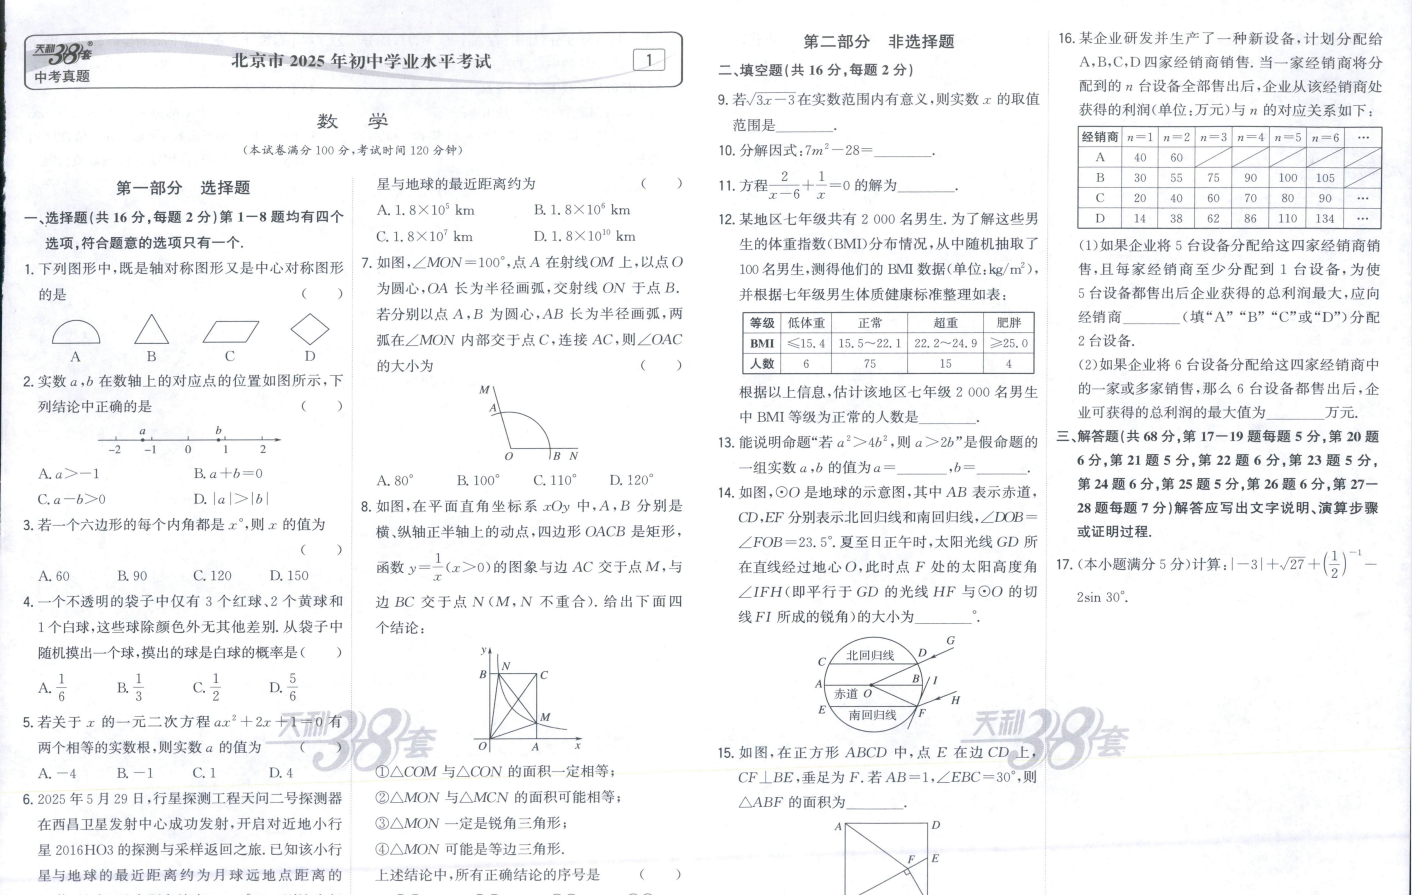 天利38套
中考真题
北京市 2025 年初中学业水平考试
1
数 学
(本试卷满分 100 分,考试时间 120 分钟)
第一部分 选择题
一、选择题(共 16 分,每题 2 分)第 1—8 题均有四个
选项,符合题意的选项只有一个.
1. 下列图形中,既是轴对称图形又是中心对称图形
的是 ( )
A B C D
2. 实数 a,b 在数轴上的对应点的位置如图所示,下
列结论中正确的是 ( )
a b
-2 -1 0 1 2
A. a>-1 B. a+b=0
C. a-b>0 D. |a|>|b|
3. 若一个六边形的每个内角都是 x°,则 x 的值为
( )
A. 60 B. 90 C. 120 D. 150
4. 一个不透明的袋子中仅有 3 个红球、2 个黄球和
1 个白球,这些球除颜色外无其他差别. 从袋子中
随机摸出一个球,摸出的球是白球的概率是( )
A. 1/6 B. 1/3 C. 1/2 D. 5/6
5. 若关于 x 的一元二次方程 ax²+2x+1=0 有
两个相等的实数根,则实数 a 的值为 ( )
A. -4 B. -1 C. 1 D. 4
6. 2025 年 5 月 29 日,行星探测工程天问二号探测器
在西昌卫星发射中心成功发射,开启对近地小行
星 2016HO3 的探测与采样返回之旅. 已知该小行
星与地球的最近距离约为月球远地点距离的
星与地球的最近距离约为 ( )
A. 1.8×10⁵ km B. 1.8×10⁶ km
C. 1.8×10⁷ km D. 1.8×10¹⁰ km
7. 如图,∠MON=100°,点 A 在射线OM 上,以点 O
为圆心,OA 长为半径画弧,交射线 ON 于点 B.
若分别以点 A,B 为圆心,AB 长为半径画弧,两
弧在∠MON 内部交于点 C,连接 AC,则∠OAC
的大小为 ( )
M
A
O B N
A. 80° B. 100° C. 110° D. 120°
8. 如图,在平面直角坐标系 xOy 中,A,B 分别是
横、纵轴正半轴上的动点,四边形 OACB 是矩形,
函数 y=1/x(x>0)的图象与边 AC 交于点 M,与
边 BC 交于点 N(M,N 不重合). 给出下面四
个结论:
y
B N C
M
O A x
①△COM 与△CON 的面积一定相等;
②△MON 与△MCN 的面积可能相等;
③△MON 一定是锐角三角形;
④△MON 可能是等边三角形.
上述结论中,所有正确结论的序号是 ( )
第二部分 非选择题
二、填空题(共 16 分,每题 2 分)
9. 若√3x-3在实数范围内有意义,则实数 x 的取值
范围是________.
10. 分解因式:7m²-28=________.
11. 方程2/(x-6)+1/x=0 的解为________.
12. 某地区七年级共有 2 000 名男生. 为了解这些男
生的体重指数(BMI)分布情况,从中随机抽取了
100 名男生,测得他们的 BMI 数据(单位:kg/m²),
并根据七年级男生体质健康标准整理如表:
等级 低体重 正常 超重 肥胖
BMI ≤15.4 15.5~22.1 22.2~24.9 ≥25.0
人数 6 75 15 4
根据以上信息,估计该地区七年级 2 000 名男生
中 BMI 等级为正常的人数是________.
13. 能说明命题“若 a²>4b²,则 a>2b”是假命题的
一组实数 a,b 的值为 a=_______,b=_______.
14. 如图,⊙O 是地球的示意图,其中 AB 表示赤道,
CD,EF 分别表示北回归线和南回归线,∠DOB=
∠FOB=23.5°. 夏至日正午时,太阳光线 GD 所
在直线经过地心 O,此时点 F 处的太阳高度角
∠IFH(即平行于 GD 的光线 HF 与⊙O 的切
线 FI 所成的锐角)的大小为________°.
G
C 北回归线 D
A 赤道 O B I
H
E 南回归线 F
15. 如图,在正方形 ABCD 中,点 E 在边 CD 上,
CF⊥BE,垂足为 F. 若 AB=1,∠EBC=30°,则
△ABF 的面积为________.
A D
F E
16. 某企业研发并生产了一种新设备,计划分配给
A,B,C,D 四家经销商销售. 当一家经销商将分
配到的 n 台设备全部售出后,企业从该经销商处
获得的利润(单位:万元)与 n 的对应关系如下:
经销商 n=1 n=2 n=3 n=4 n=5 n=6 …
A 40 60
B 30 55 75 90 100 105
C 20 40 60 70 80 90 …
D 14 38 62 86 110 134 …
(1)如果企业将 5 台设备分配给这四家经销商销
售,且每家经销商至少分配到 1 台设备,为使
5 台设备都售出后企业获得的总利润最大,应向
经销商________(填“A”“B”“C”或“D”)分配
2 台设备.
(2)如果企业将 6 台设备分配给这四家经销商中
的一家或多家销售,那么 6 台设备都售出后,企
业可获得的总利润的最大值为________万元.
三、解答题(共 68 分,第 17—19 题每题 5 分,第 20 题
6 分,第 21 题 5 分,第 22 题 6 分,第 23 题 5 分,
第 24 题 6 分,第 25 题 5 分,第 26 题 6 分,第 27—
28 题每题 7 分)解答应写出文字说明、演算步骤
或证明过程.
17. (本小题满分 5 分)计算:|-3|+√27+(1/2)⁻¹-
2sin 30°.
天利38套
天利38套